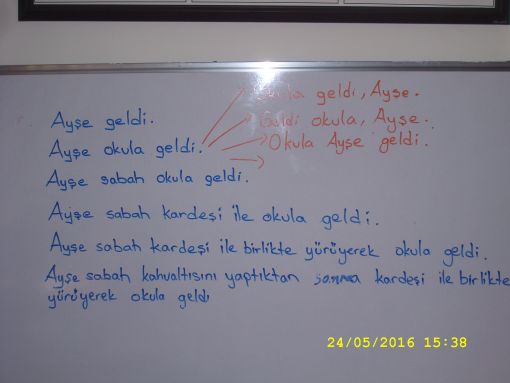 Okula geldi, Ayşe.
Geldi okula, Ayşe.
Okula Ayşe geldi.
Ayşe geldi.
Ayşe okula geldi.
Ayşe sabah okula geldi.
Ayşe sabah kardeşi ile okula geldi.
Ayşe sabah kardeşi ile birlikte yürüyerek okula geldi.
Ayşe sabah kahvaltısını yaptıktan sonra kardeşi ile birlikte
yürüyerek okula geldi
24/05/2016 15:38